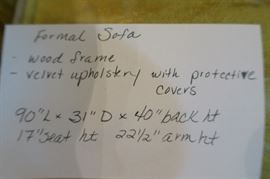 Formal Sofa
- wood frame
- velvet upholstery with protective
covers
90"L x 31"D x 40" back ht
17" seat ht 22 1/2" arm ht